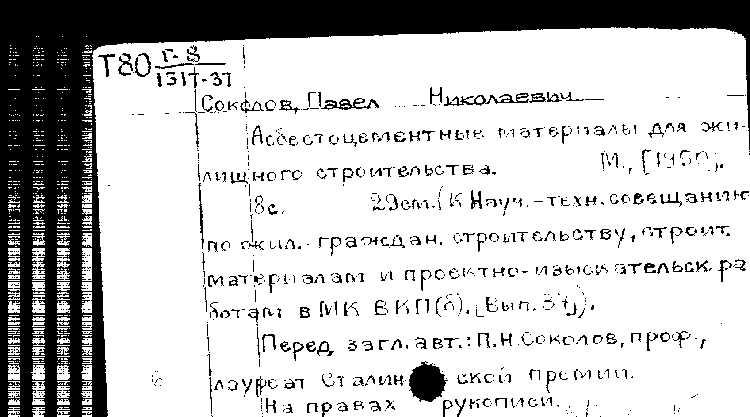 Т80 Г-8
1317-37
Соколов, Павел Николаевич
Асбестоцементные материалы для жи-
лищного строительства. М., [1950].
8с. 29см. (К Науч.-техн. совещанию
по жил.-граждан. строительству, строит.
материалам и проектно-изыскательск. ра
ботам в МК ВКП(б). [Вып. 37]).
Перед загл. авт.: П.Н. Соколов, проф.,
лауреат Сталинской премии.
На правах рукописи.